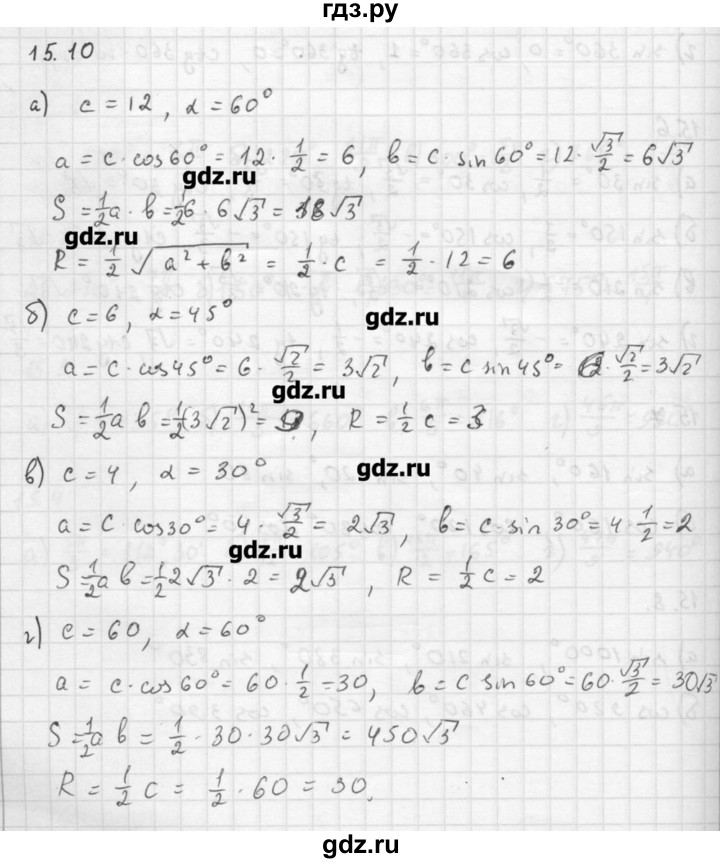 гдз.ру
15.10
а) c = 12, α = 60°
a = c · cos 60° = 12 · 1/2 = 6, b = c · sin 60° = 12 · √3/2 = 6√3
gdz.ru
S = 1/2 a · b = 1/2 6 · 6√3 = 18√3
gdz.ru
R = 1/2 √(a² + b²) = 1/2 · c = 1/2 · 12 = 6
б) c = 6, α = 45°
gdz.ru
a = c · cos 45° = 6 · √2/2 = 3√2, b = c sin 45° = 6 · √2/2 = 3√2
gdz.ru
S = 1/2 a b = 1/2 (3√2)² = 9, R = 1/2 c = 3
в) c = 4, α = 30°
gdz.ru
a = c cos 30° = 4 · √3/2 = 2√3, b = c · sin 30° = 4 · 1/2 = 2
gdz.ru
S = 1/2 a b = 1/2 2√3 · 2 = 2√3, R = 1/2 c = 2
г) c = 60, α = 60°
a = c · cos 60° = 60 · 1/2 = 30, b = c sin 60° = 60 · √3/2 = 30√3
S = 1/2 a b = 1/2 · 30 · 30√3 = 450√3
R = 1/2 c = 1/2 · 60 = 30.
gdz.ru